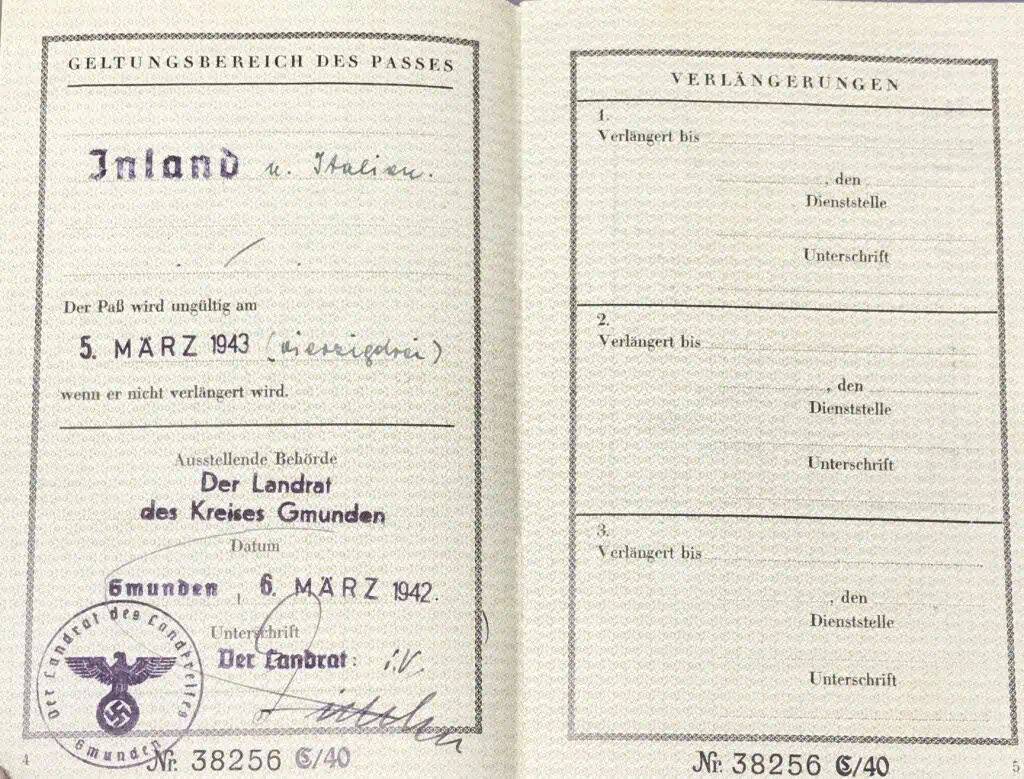 GELTUNGSBEREICH DES PASSES
Inland u. Italien.
Der Paß wird ungültig am
5. MÄRZ 1943 (vierzigdrei)
wenn er nicht verlängert wird.
Ausstellende Behörde
Der Landrat
des Kreises Gmunden
Datum
Gmunden, 6. MÄRZ 1942.
Unterschrift
Der Landrat: i.V.
Der Landrat des Landkreises
Gmunden
4
Nr. 38256 C/40
VERLÄNGERUNGEN
1.
Verlängert bis
, den
Dienststelle
Unterschrift
2.
Verlängert bis
, den
Dienststelle
Unterschrift
3.
Verlängert bis
, den
Dienststelle
Unterschrift
Nr. 38256 C/40
5